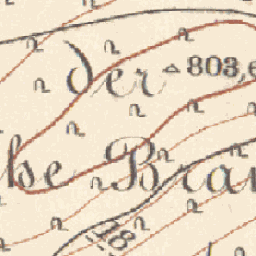 der
803,
he Bra
18